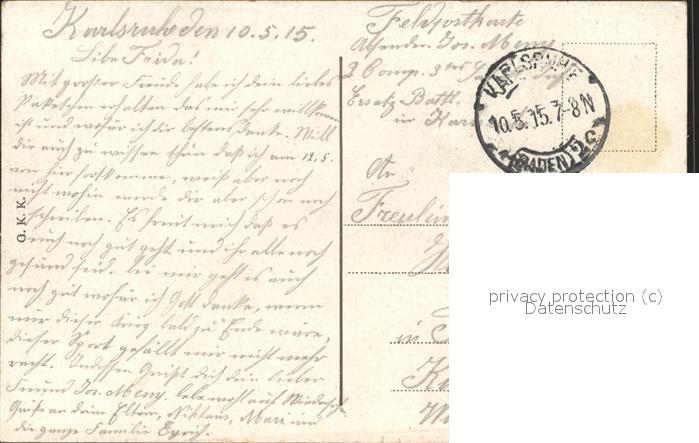 Karlsruhe den 10.5.15.
Liebe Frida!
Mit großer Freude habe ich dein liebes
Paketchen erhalten das mir sehr willkommen
ist und wofür ich dir bestens danke. Will
dir auch zu wissen thun daß ich am 12.5.
von hier fortkomme, weiß aber noch
nicht wohin werde dir aber schon noch
schreiben. Es freut mich daß es
euch noch gut geht und ihr alle noch
gesund seid. bei mir geht es auch
noch gut wofür ich Gott danke, wenn
nur dieser Krieg bald zu Ende wäre,
dieser Sport gefällt mir nicht mehr
recht. Indessen Grüßt dich dein lieber
Freund Jos. Meny. lebe wohl auf Wiedersehn
Grüße an deine Eltern, Niklaus, Marie und
die ganze Familie
G. K. K.
Feldpostkarte
Absender Jos. Meny
2 Comp. 3tes
Ersatz Battl.
in
KARLSRUHE
10.5.15.7-8N
(BADEN)
An
in
privacy protection (c)
Datenschutz